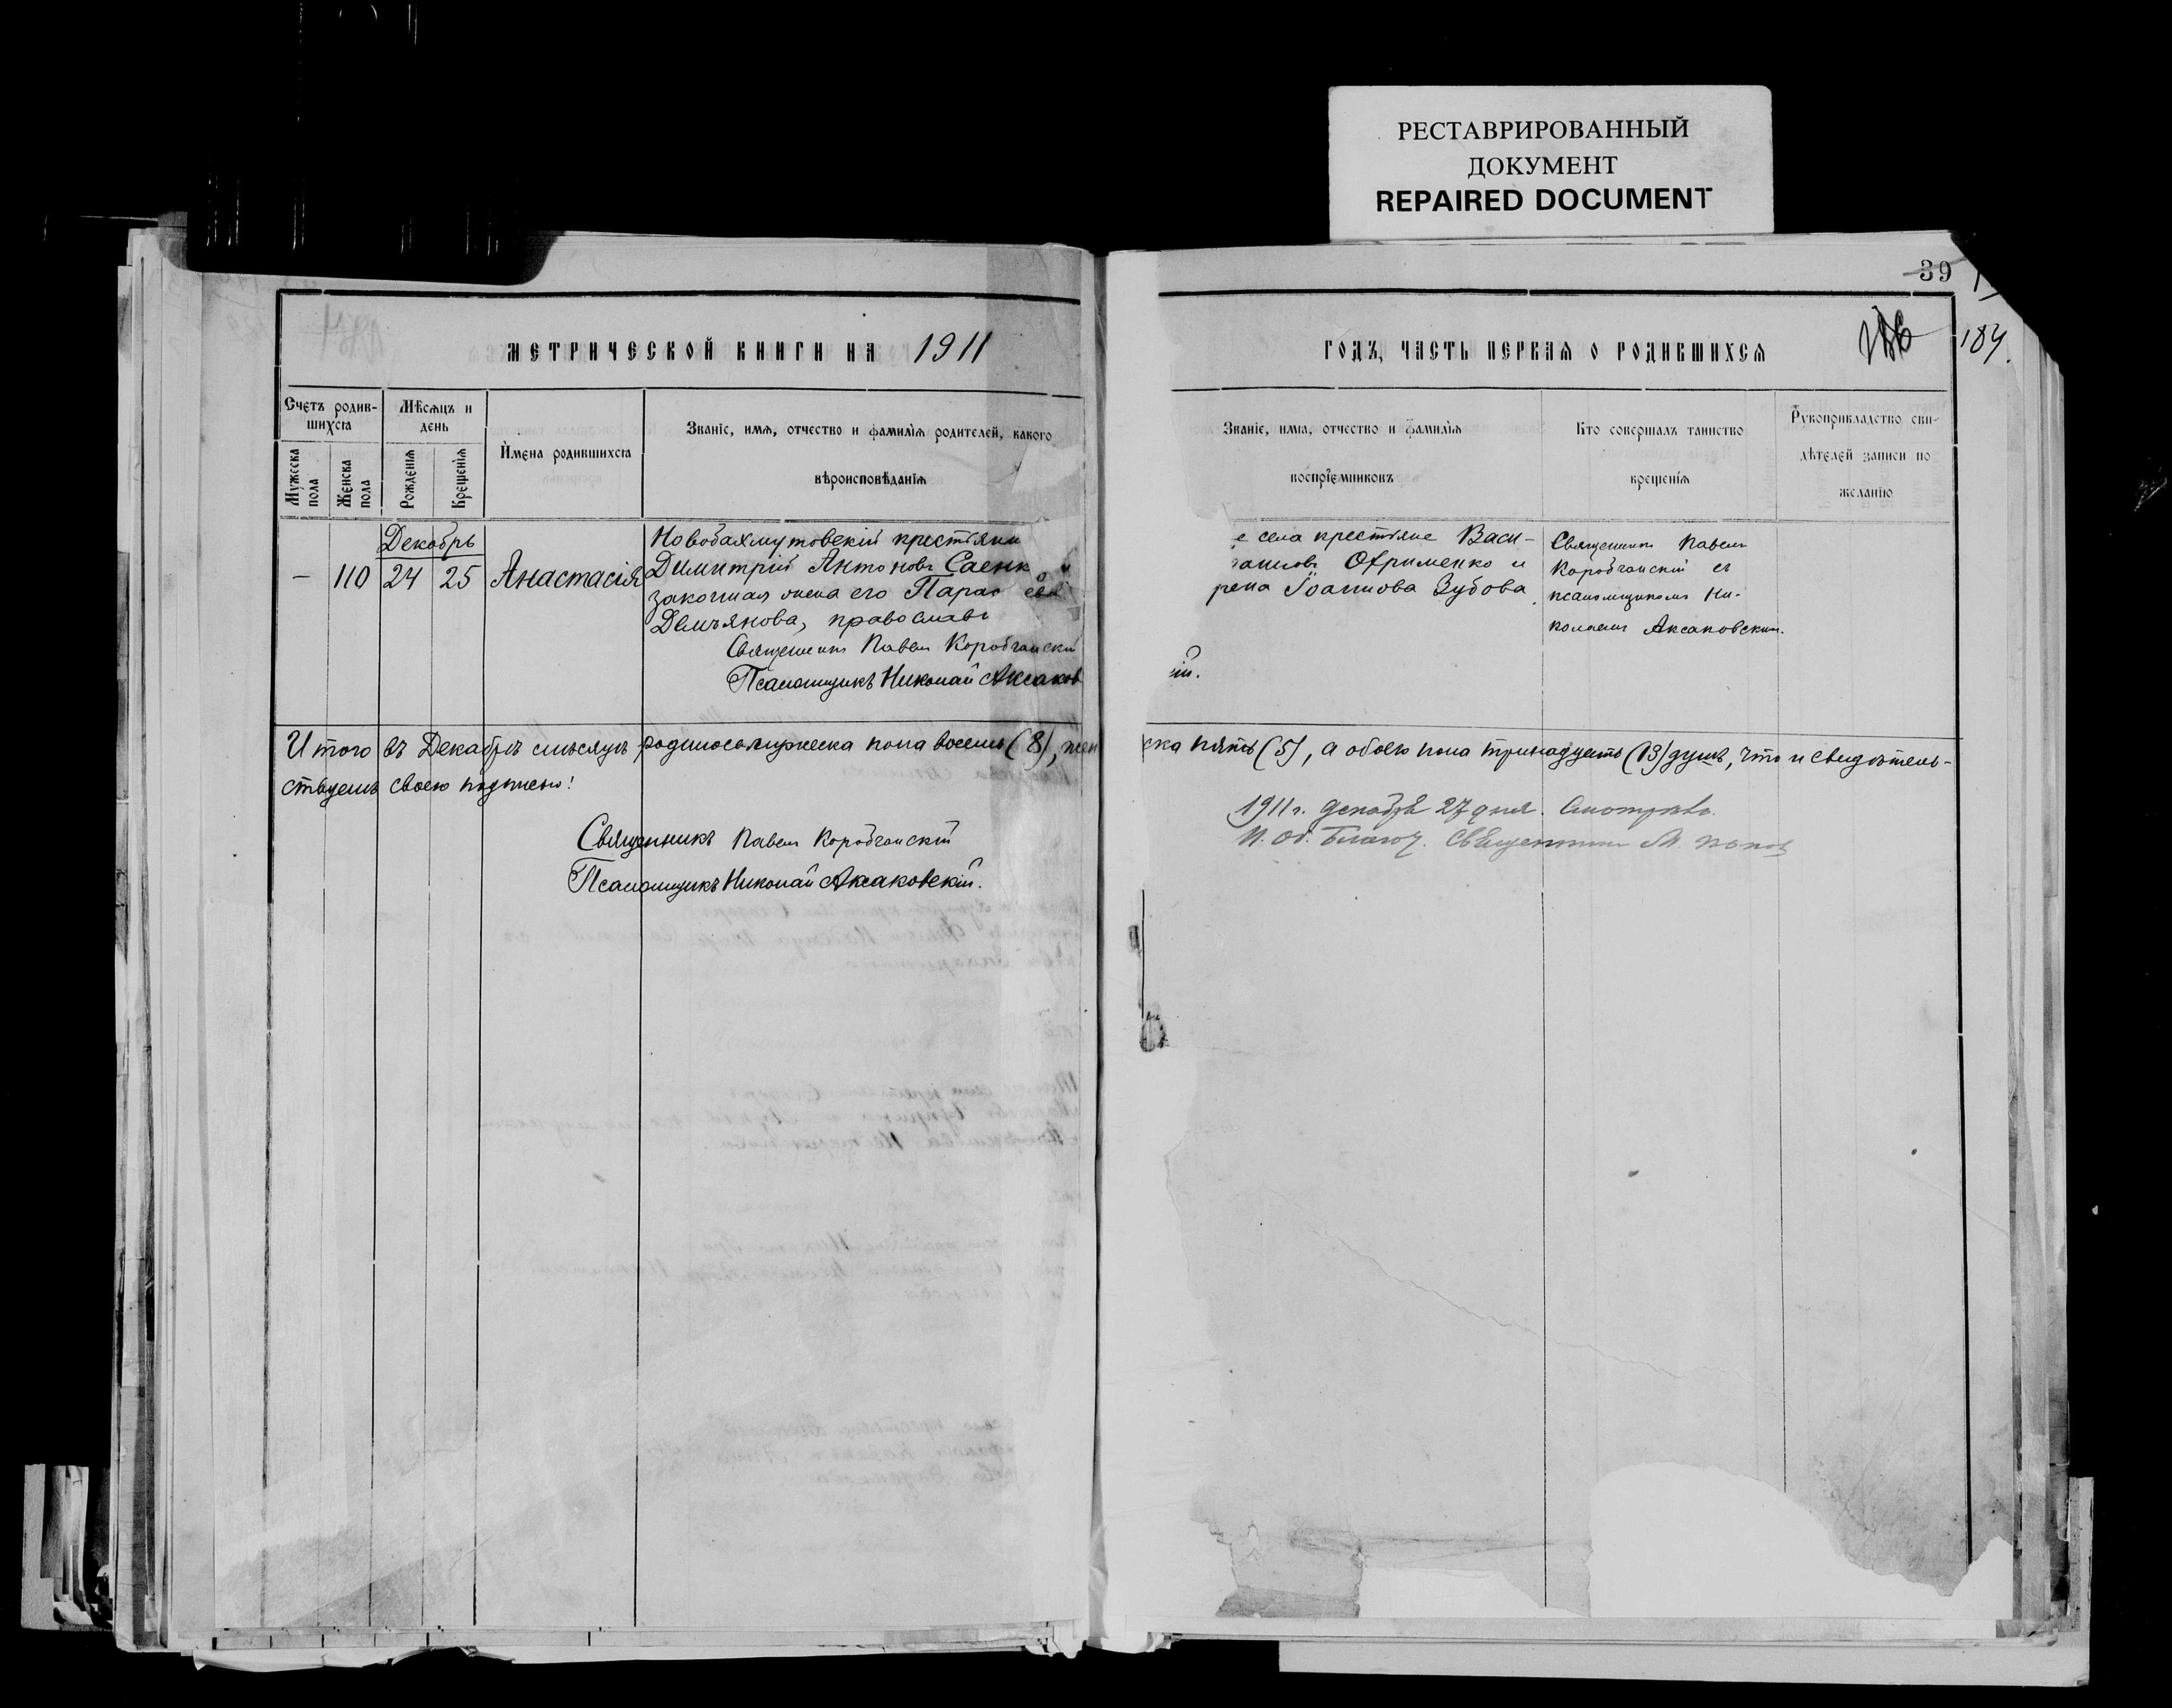 РЕСТАВРИРОВАННЫЙ
ДОКУМЕНТ
REPAIRED DOCUMENT
39
184.
МЕТРИЧЕСКОЙ КНИГИ НА 1911
ГОДЪ, ЧАСТЬ ПЕРВАЯ О РОДИВШИХСЯ
Счетъ родив-
шихся
Мужеска
пола
Женска
пола
Мѣсяцъ и
день
Рожденія
Крещенія
Имена родившихся
Званіе, имя, отчество и фамилія родителей, какого
вѣроисповѣданія
Званіе, имя, отчество и фамилія
воспріемниковъ
Кто совершалъ таинство
крещенія
Рукоприкладство сви-
дѣтелей записи по
желанію
Декабрь
— 110 24 25 Анастасія
Новобахмутовскій крестьяни
Димитрій Антоновъ Саенк и
законная жена его Парас ева
Демьянова, православ
Священникъ Павелъ Коробчанскій
Псаломщикъ Николай Аксаков
е села крестьяне Васи-
Офрименко и
рена Іоаннова Зубова
ій.
Священникъ Павелъ
Коробчанскій съ
псаломщикомъ Ни-
колаемъ Аксаковским.
Итого въ Декабрѣ мѣсяцѣ родилось мужеска пола восемь (8), жен
ска пять (5), а обоего пола тринадцать (13) душъ, что и свидѣтель-
ствуемъ своею подписью:
Священникъ Павелъ Коробчанскій
Псаломщикъ Николай Аксаковскій.
1911 г. декабря 27 дня. Смотрѣлъ
И. об. Благоч. Священникъ М. Попов